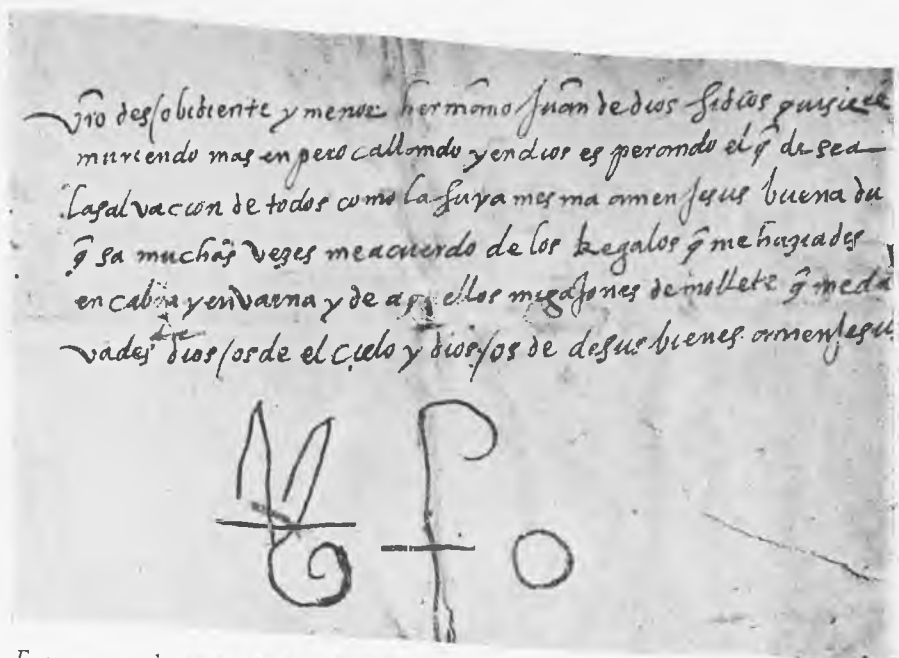 vr̃o des/obidiente y menor hermãno Juãn de dios si dios quisiere
muriendo mas enpero callamdo y en dios es peramdo el q̃ de sea
la sal vacion de todos como la suya mes ma amen Jesus buena du
q̃ sa muchas vezes me acuerdo de los Regalos q̃ me haziades
en cabra y en vaena y de aq ellos migaJones de mollete q̃ me da
vades dios /os de el cielo y dios /os de de sus bienes amen Jesu